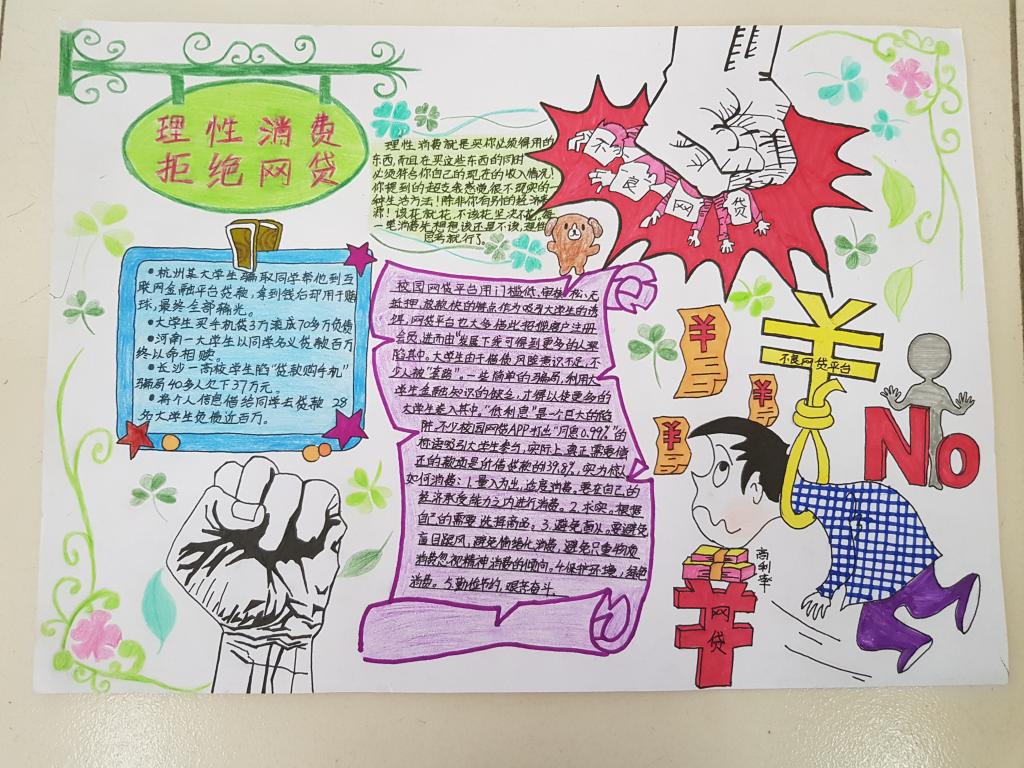 理性消费
拒绝网贷
理性消费就是买你必须得用的
东西,而且在买这些东西的同时
必须符合你自己的现在的收入情况!
你提到的超支我感觉很不现实的一
种生活方法!除非你有别的经济来
源!该花就花,不该花坚决不花,每
一笔消费先想想该还是不该,理性
思考就行了。
不
良
网
贷
•杭州某大学生骗取同学帮他到互
联网金融平台贷款,拿到钱后却用于赌
球,最终全部输光。
•大学生买手机贷3万滚成70多万负债
•河南一大学生以同学名义贷款百万
终以命相赎。
•长沙一高校学生陷“贷款购手机”
骗局40多人欠下37万元。
•将个人信息借给同学去贷款 28
名大学生负债近百万。
校园网贷平台用门槛低,审核松,无
抵押,放款快的特点作为吸引大学生的诱
饵,网贷平台也大多借此招徕客户注册
会员,进而由“发展下线可得到更多的人聚
陷其中。大学生由于借债风险意识不足,不
少人被“套路”。一些简单的骗局,利用大
学生金融知识的缺乏,才得以使更多的
大学生卷入其中,“低利息”是一个巨大的陷
阱,不少校园网贷APP打出“月息0.99%”的
标语吸引大学生参与,实际上真正需要偿
还的款项是价值贷款的39.8%,实为惊人
如何消费:1.量入为出,适度消费,要在自己的
经济承受能力之内进行消费。2.求实。根据
自己的需要选择商品;3.避免盲从,要避免
盲目跟风,避免情绪化消费,避免只重物质
消费忽视精神消费的倾向。4.保护环境,绿色
消费。5.勤俭节约,艰苦奋斗
¥
¥
¥
不良网贷平台
No
高利率
网
贷